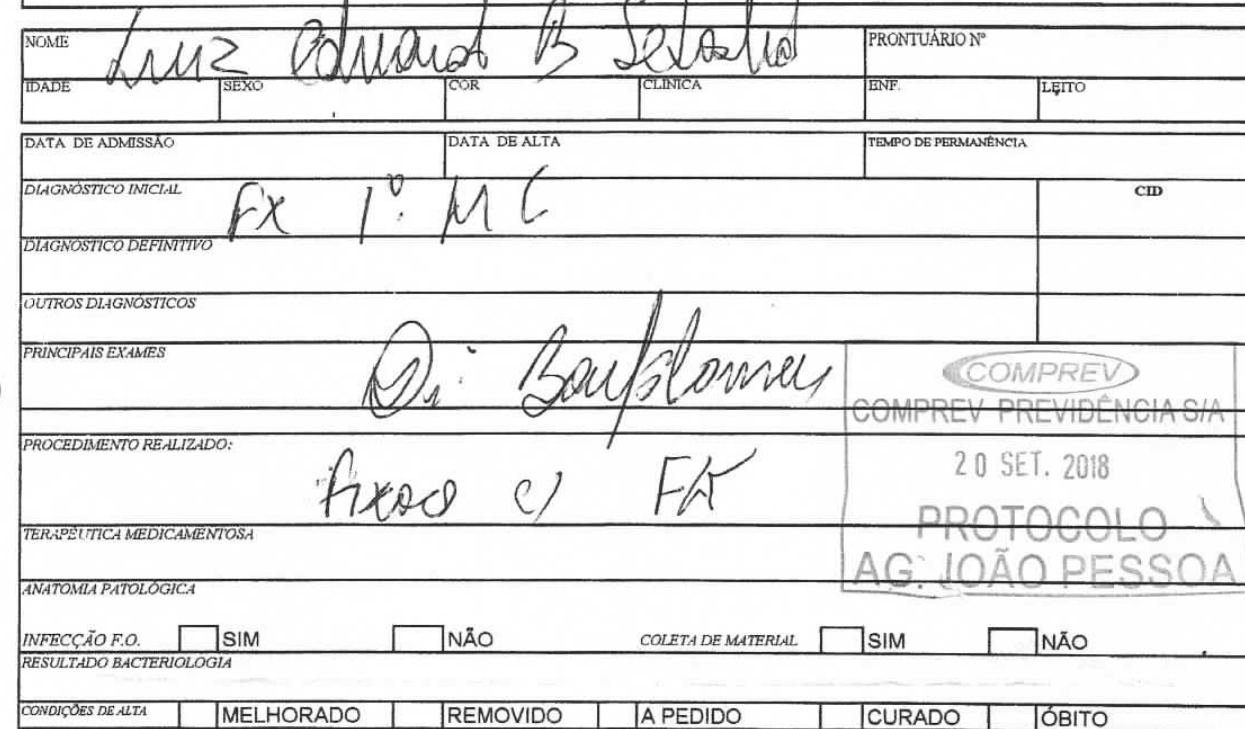 NOME Luiz Eduardo B PRONTUÁRIO Nº
IDADE SEXO COR CLINICA ENF. LEITO
DATA DE ADMISSÃO DATA DE ALTA TEMPO DE PERMANÊNCIA
DIAGNÓSTICO INICIAL FX 1º MC CID
DIAGNÓSTICO DEFINITIVO
OUTROS DIAGNÓSTICOS
PRINCIPAIS EXAMES
COMPREV
COMPREV PREVIDÊNCIA S/A
PROCEDIMENTO REALIZADO: c/ FK
20 SET. 2018
PROTOCOLO
TERAPÊUTICA MEDICAMENTOSA
AG. JOÃO PESSOA
ANATOMIA PATOLÓGICA
INFECÇÃO F.O. SIM NÃO COLETA DE MATERIAL SIM NÃO
RESULTADO BACTERIOLOGIA
CONDIÇÕES DE ALTA MELHORADO REMOVIDO A PEDIDO CURADO ÓBITO